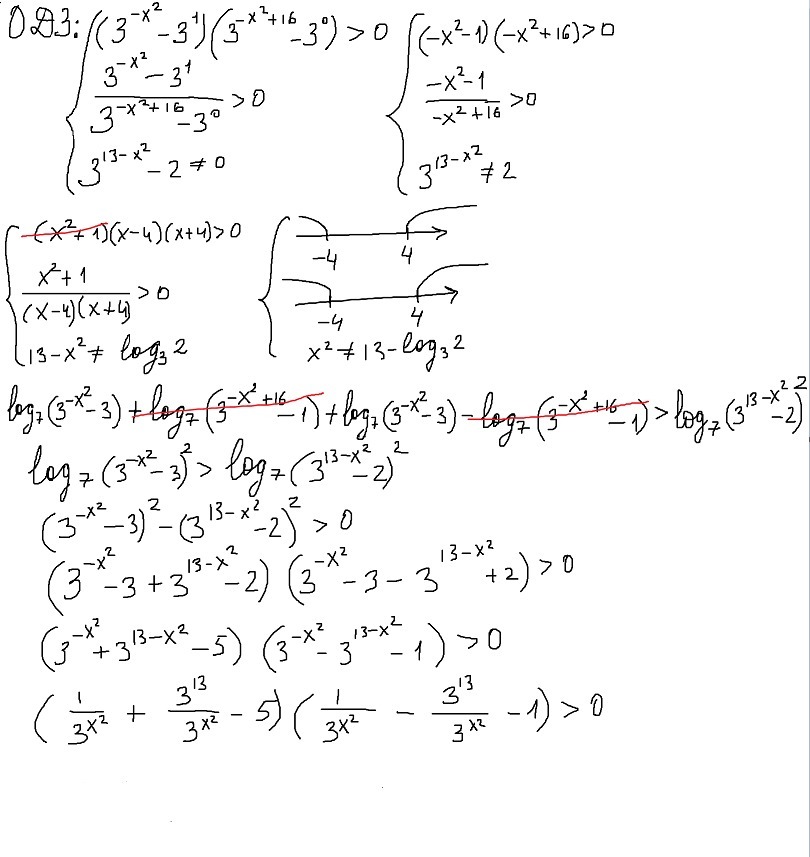 ОДЗ: { (3^{-x^2} - 3^1)(3^{-x^2+16} - 3^0) > 0 { (-x^2-1)(-x^2+16) > 0
(3^{-x^2} - 3^1)/(3^{-x^2+16} - 3^0) > 0 (-x^2-1)/(-x^2+16) > 0
3^{13-x^2} - 2 ≠ 0 3^{13-x^2} ≠ 2
{ -(x^2+1)(x-4)(x+4) > 0 { -4 4
(x^2+1)/((x-4)(x+4)) > 0 -4 4
13-x^2 ≠ log_3 2 x^2 ≠ 13 - log_3 2
log_7(3^{-x^2} - 3) + log_7(3^{-x^2+16} - 1) + log_7(3^{-x^2} - 3) - log_7(3^{-x^2+16} - 1) > log_7(3^{13-x^2} - 2)^2
log_7(3^{-x^2} - 3)^2 > log_7(3^{13-x^2} - 2)^2
(3^{-x^2} - 3)^2 - (3^{13-x^2} - 2)^2 > 0
(3^{-x^2} - 3 + 3^{13-x^2} - 2)(3^{-x^2} - 3 - 3^{13-x^2} + 2) > 0
(3^{-x^2} + 3^{13-x^2} - 5)(3^{-x^2} - 3^{13-x^2} - 1) > 0
(1/3^{x^2} + 3^{13}/3^{x^2} - 5)(1/3^{x^2} - 3^{13}/3^{x^2} - 1) > 0